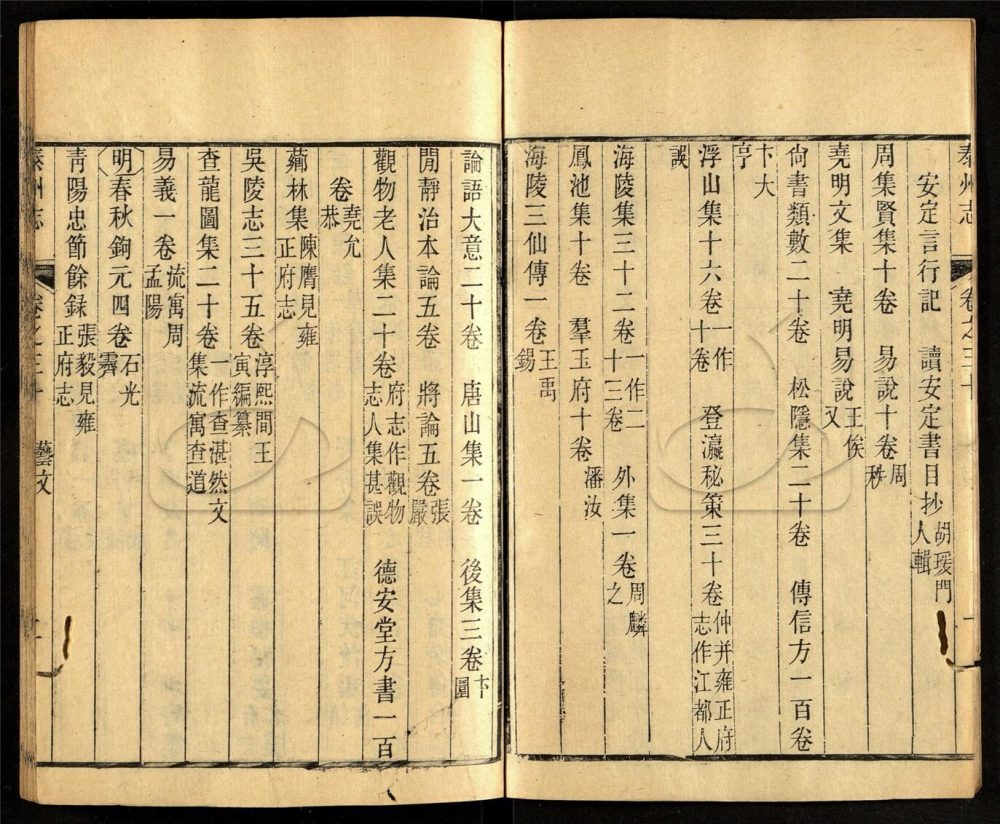 泰州志 卷之三十
安定言行記 讀安定書目抄 胡瑗門人輯
周集賢集十卷 易說十卷 周秩
堯明文集 堯明易說 王俟又
尚書類數二十卷 松隱集二十卷 傳信方一百卷
卞大亨
浮山集十六卷 一作十卷 登瀛秘策三十卷 仲并雍正府志作江都人
誤
海陵集三十二卷 一作二十三卷 外集一卷 周麟之
鳳池集十卷 羣玉府十卷 潘汝
海陵三仙傳一卷 王禹錫
論語大意二十卷 唐山集一卷 後集三卷 卞圜
閒靜治本論五卷 將論五卷 張嚴
觀物老人集二十卷 府志作觀物志人集甚誤 德安堂方書一百
卷 堯允恭
薌林集 陳膺見雍正府志
吳陵志三十五卷 淳熙間王寅編纂
查龍圖集二十卷 一作查湛然文集流寓查道
易義一卷 流寓周孟陽
明春秋鉤元四卷 石光霽
青陽忠節餘録 張毅見雍正府志
泰州志 卷之三十 藝文